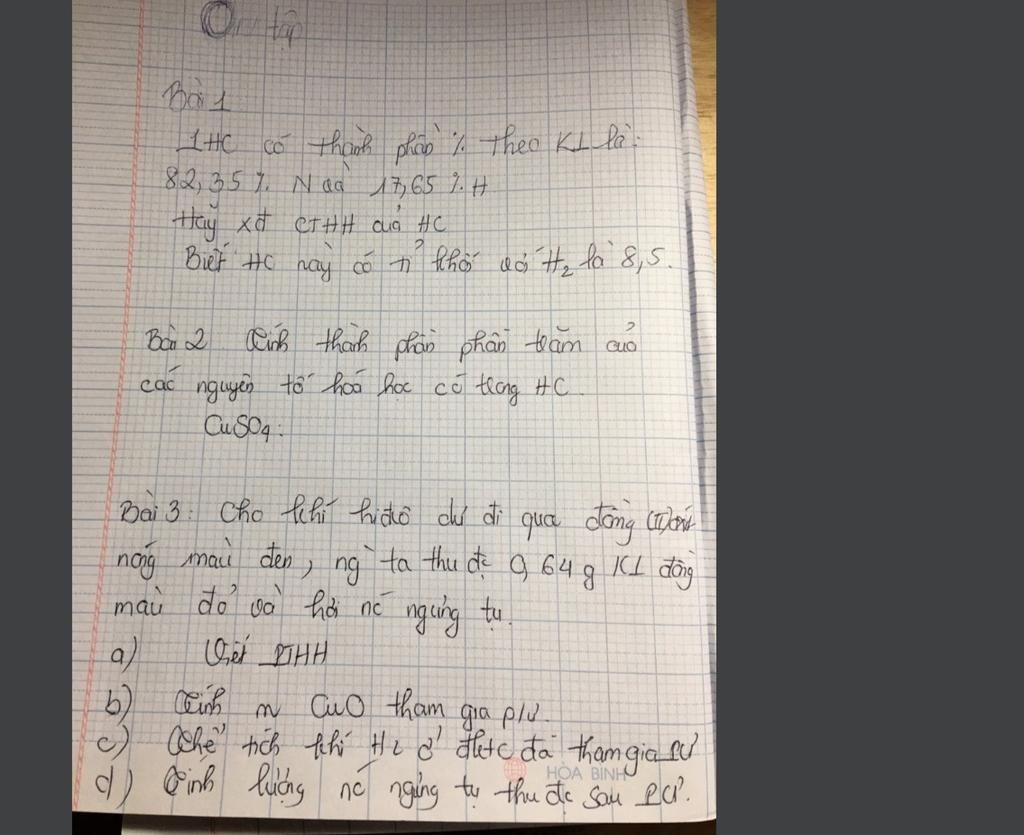 Ôn tập
Bài 1
1HC có thành phần % theo KL là:
82,35 % N và 17,65 % H
Hãy xđ CTHH của HC
Biết HC này có tỉ khối với H2 là 8,5.
Bài 2 Tính thành phần phần trăm của
các nguyên tố hoá học có trong HC.
CuSO4:
Bài 3: Cho khí hiđrô dư đi qua đồng (II) oxit
nóng màu đen, ng ta thu đc 0,64g KL đồng
màu đỏ và hơi nc ngưng tụ.
a) Viết PTHH
b) Tính m CuO tham gia p/ư.
c) Thể tích khí H2 ở đktc đã tham gia PƯ
HÒA BÌNH
d) Tính lượng nc ngưng tụ thu đc sau PƯ.